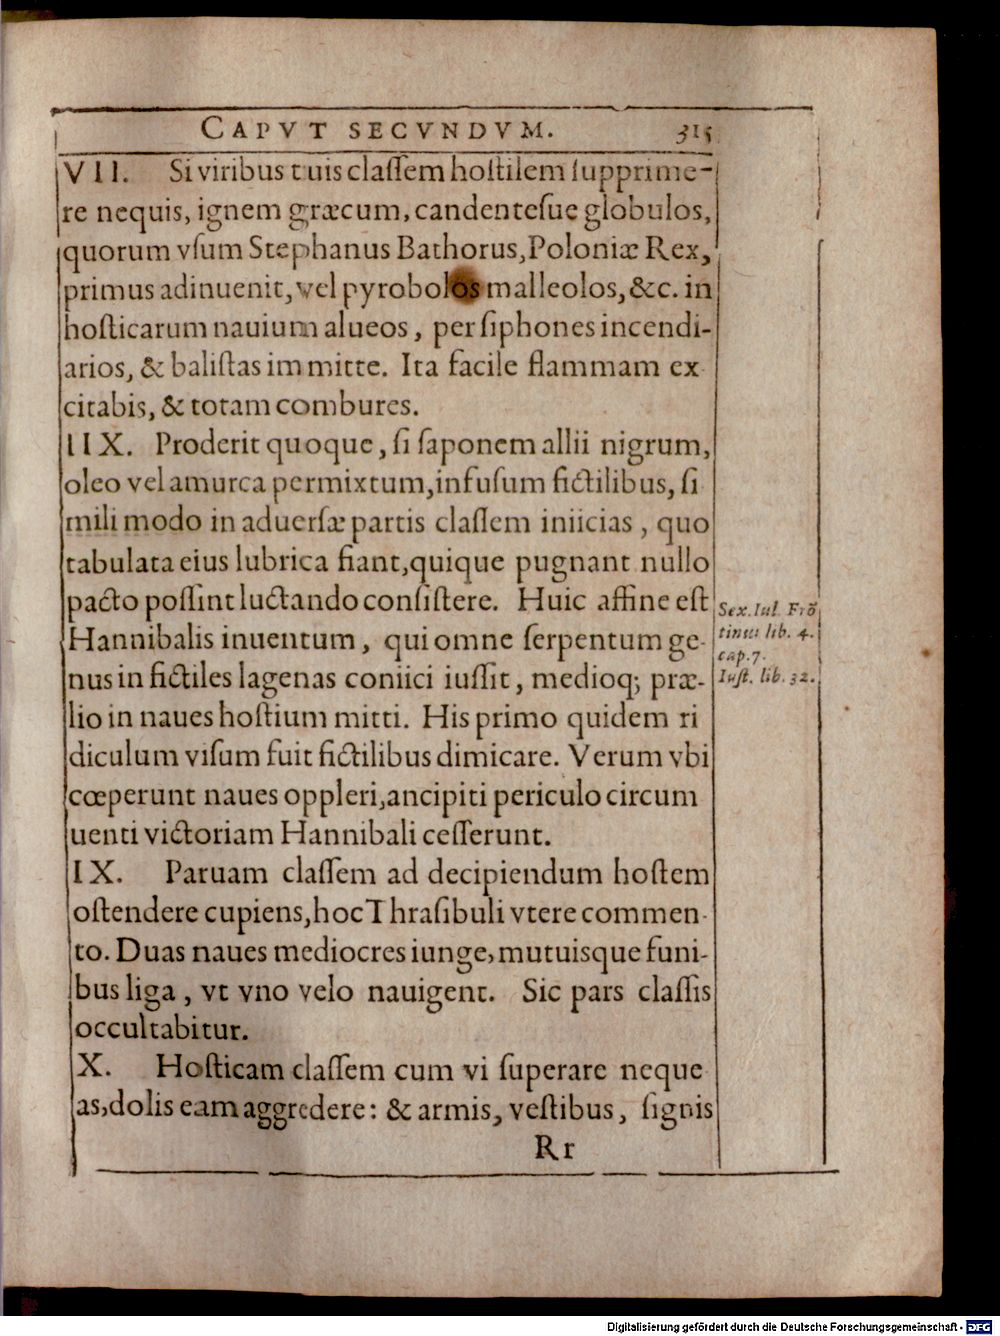 CAPVT SECVNDVM. 315
VII. Si viribus tuis claſſem hoſtilem ſupprime-
re nequis, ignem græcum, candenteſue globulos,
quorum vſum Stephanus Bathorus, Poloniæ Rex,
primus adinuenit, vel pyrobolos malleolos, &c. in
hoſticarum nauium alueos, per ſiphones incendi-
arios, & baliſtas immitte. Ita facile flammam ex
citabis, & totam combures.
IIX. Proderit quoque, ſi ſaponem allii nigrum,
oleo vel amurca permixtum, infuſum fictilibus, ſi
mili modo in aduerſæ partis claſſem iniicias, quo
tabulata eius lubrica fiant, quique pugnant nullo
pacto poſſint luctando conſiſtere. Huic affine eſt
Hannibalis inuentum, qui omne ſerpentum ge-
nus in fictiles lagenas coniici iuſſit, medioq; præ-
lio in naues hoſtium mitti. His primo quidem ri
diculum viſum fuit fictilibus dimicare. Verum vbi
cœperunt naues oppleri, ancipiti periculo circum
uenti victoriam Hannibali ceſſerunt.
Sex. Iul. Frõ
tinus lib. 4.
cap. 7.
Iuſt. lib. 32.
IX. Paruam claſſem ad decipiendum hoſtem
oſtendere cupiens, hoc Thraſibuli vtere commen-
to. Duas naues mediocres iunge, mutuisque funi-
bus liga, vt vno velo nauigent. Sic pars claſſis
occultabitur.
X. Hoſticam claſſem cum vi ſuperare neque
as, dolis eam aggredere: & armis, veſtibus, ſignis
Rr
Digitalisierung gefördert durch die Deutsche Forschungsgemeinschaft - DFG